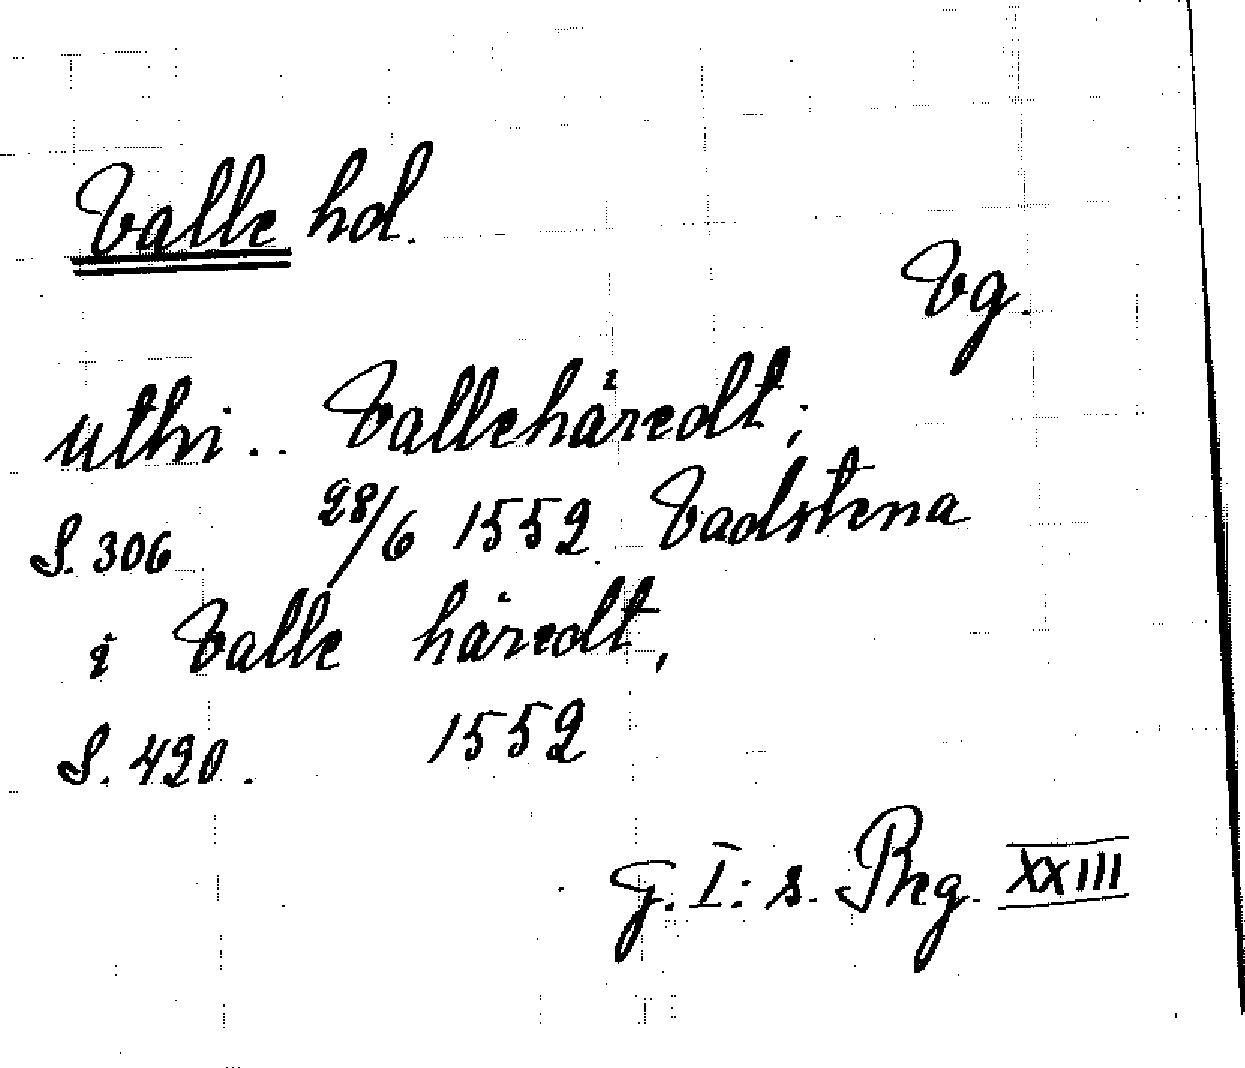 Valle hd.
Vg.
uthi .. Vallehäredt;
S. 306 28/6 1552 Vadstena
i Valle häredt,
S. 420. 1552
G. I:s. Reg. XXIII